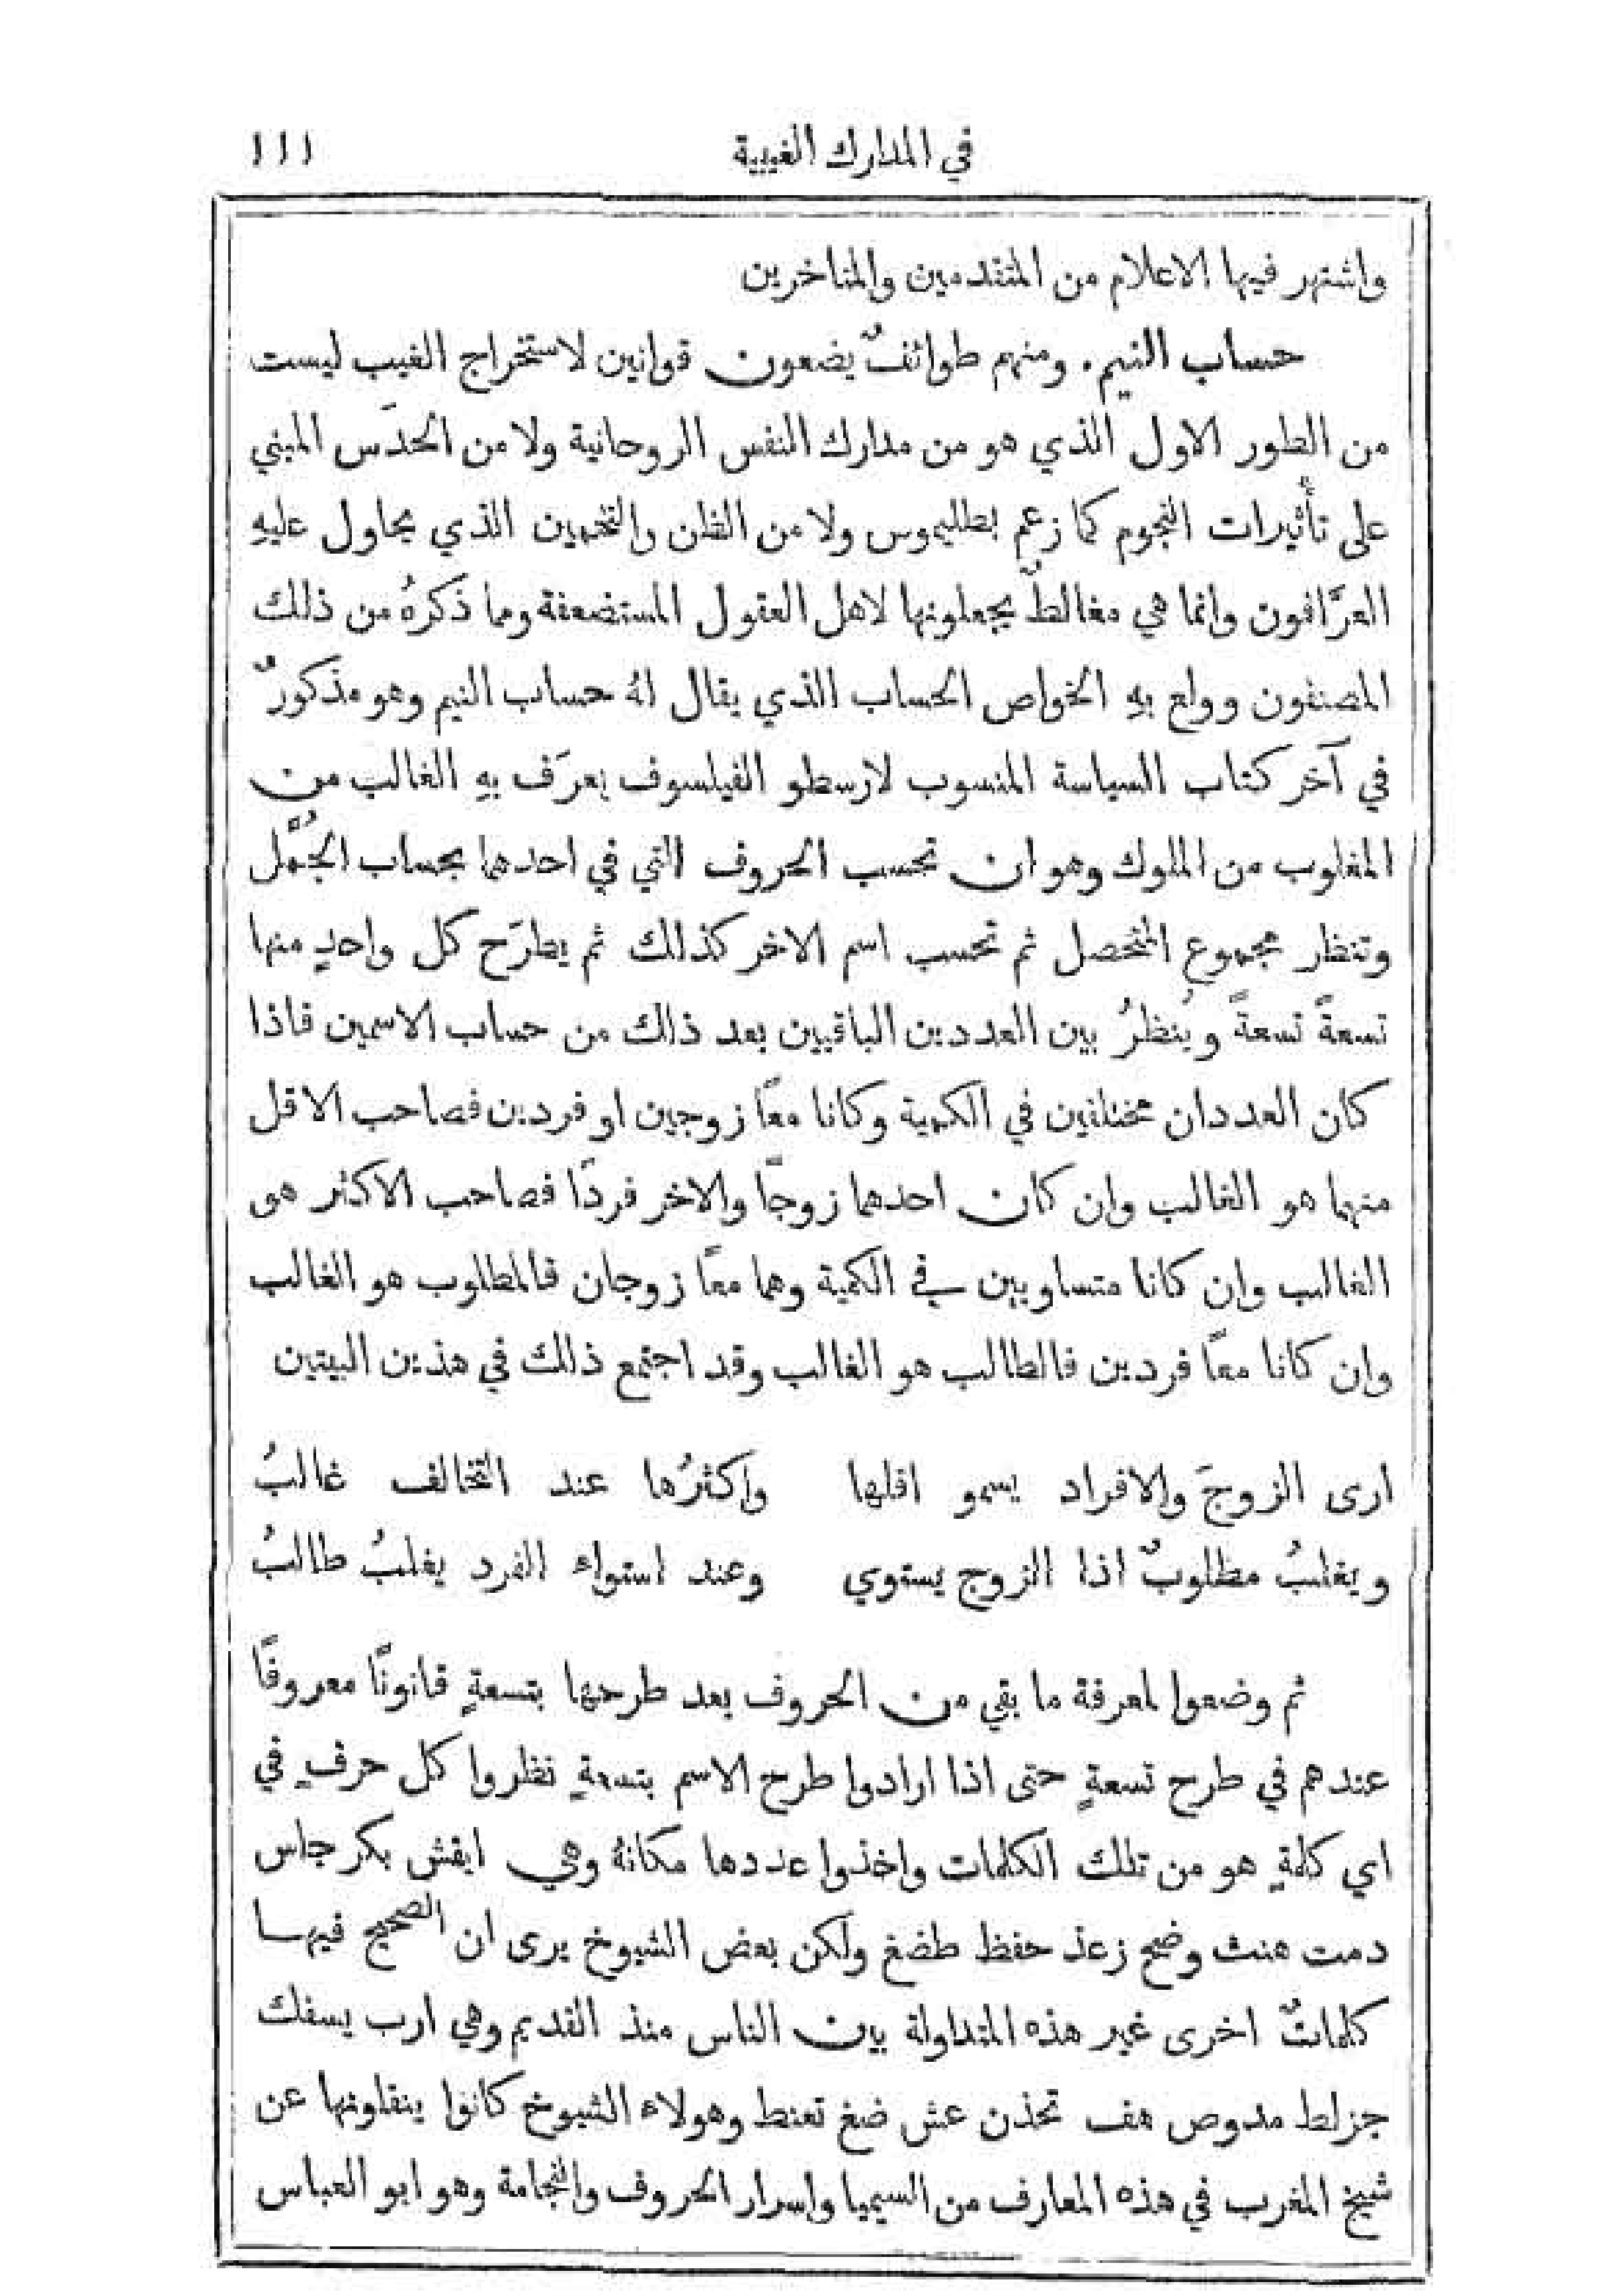 في المدارك الغيبية ١١١
واشتهر فيها الاعلام من المتقدمين والمتاخرين
حساب النيم. ومنهم طوائفٌ يضعون قوانين لاستخراج الغيب ليست
من الطور الاول الذي هو من مدارك النفس الروحانية ولا من الحدَس المبني
على تأثيرات النجوم كما زعم بطليموس ولا من الظن والتخمين الذي يحاول عليهِ
العرَّافون وانما هي مغالطٌ يجعلونها لاهل العقول المستضعفة وما ذكرهُ من ذلك
المصنفون وولع بهِ الخواص الحساب الذي يقال لهُ حساب النيم وهو مذكورٌ
في آخر كتاب السياسة المنسوب لارسطو الفيلسوف يعرَف بهِ الغالب من
المغلوب من الملوك وهو ان تحسب الحروف التي في احدهما بحساب الجُمَّل
وتنظار مجموع المتحصل ثم تحسب اسم الاخر كذلك ثم يطرَح كل واحدٍ منها
تسعةً تسعةً ويُنظرُ بين العددين الباقيين بعد ذلك من حساب الاسمين فاذا
كان العددان مختلفين في الكمية وكانا معًا زوجين او فردين فصاحب الاقل
منهما هو الغالب وان كان احدهما زوجًا والاخر فردًا فصاحب الاكثر هو
الغالب وإن كانا متساويين في الكمية وهما معًا زوجان فالمطلوب هو الغالب
وان كانا معًا فردين فالطالب هو الغالب وقد اجتمع ذلك في هذين البيتين
ارى الزوجَ والافراد يسمو اقلها واكثرُها عند التخالف غالبُ
ويغلبُ مطلوبٌ اذا الزوج يستوي وعند استواء الفرد يغلبُ طالبُ
ثم وضعوا لمعرفة ما بقي من الحروف بعد طرحها بتسعةٍ قانونًا معروفًا
عندهم في طرح تسعةٍ حتى اذا ارادوا طرح الاسم بتسعةٍ نظروا كل حرفٍ في
اي كلمةٍ هو من تلك الكلمات واخذوا عددها مكانهُ وهي ايقش بكر جلس
دمت هنث وصخ زعذ حفظ طضغ ولكن بعض الشيوخ يرى ان الصحيح فيها
كلماتٌ اخرى غير هذه المتداولة بين الناس منذ القديم وهي ارب يسفك
جزلط مدوص هف تحذن عش ضغ تعنط وهولاء الشيوخ كانوا ينقلونها عن
شيخ المغرب في هذه المعارف من السيميا واسرار الحروف والنجامة وهو ابو العباس